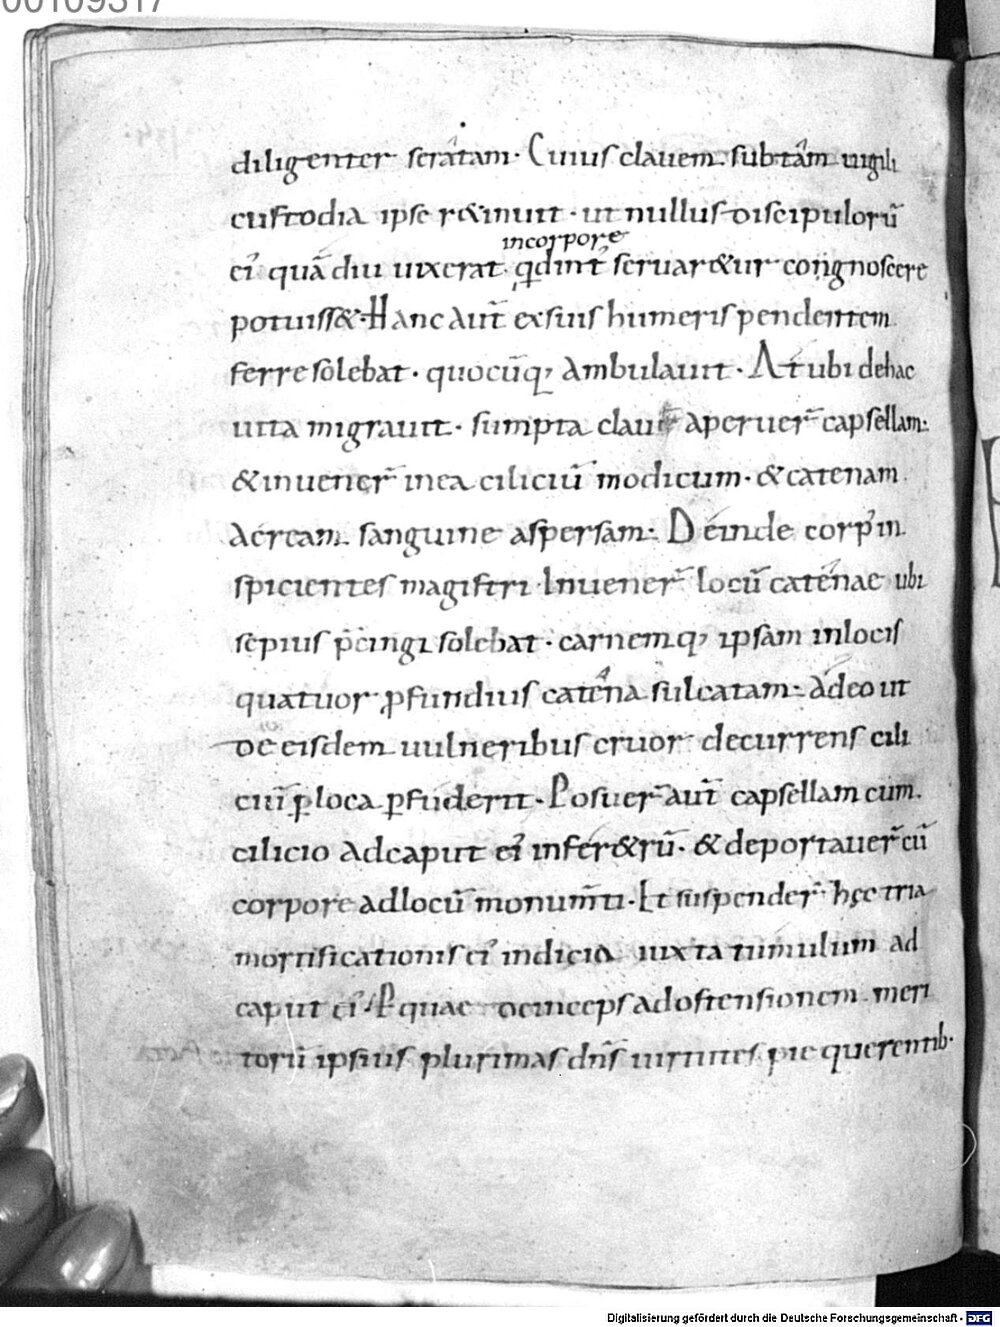 00109317
diligenter seratam· Cuius clauem· sub tam uigili
custodia ipse r&inuit· ut nullus discipuloru̅
incorpore
ei᾽ qua̅diu uixerat· qd int᾽ seruar&ur congnoscere
potuiss&· Hanc aut̅ ex suis humeris pendentem
ferre solebat· quocu̅q; ambulauit· At ubi de hac
uita migrauit· sumpta claue aperuer̅ capsellam:
& inuener̅ in ea ciliciu̅ modicum· & catenam
aeream sanguine aspersam: Deinde corp᾽ in
spicientes magistri· Inuener̅ locu̅ catenae ubi
sepius p̅cingi solebat· carnemq; ipsam in locis
quatuor ꝓfundius catena sulcatam: adeo ut
de eisdem uulneribus cruor decurrens cili
ciu̅ ꝑ loca ꝑfuderit· Posuer̅ aut̅ capsellam cum
cilicio ad caput ei᾽ in fer&ru̅· & deportauer̅ cu̅
corpore ad locu̅ monum̅ti· Et suspender̅ hęc tria
mortificationis ei᾽ indicia iuxta tumulum ad
caput ei᾽· P quae deinceps ad ostensionem meri
toru̅ ipsius plurimas dn̅s uirtutes pie querentib·
Digitalisierung gefördert durch die Deutsche Forschungsgemeinschaft - DFG